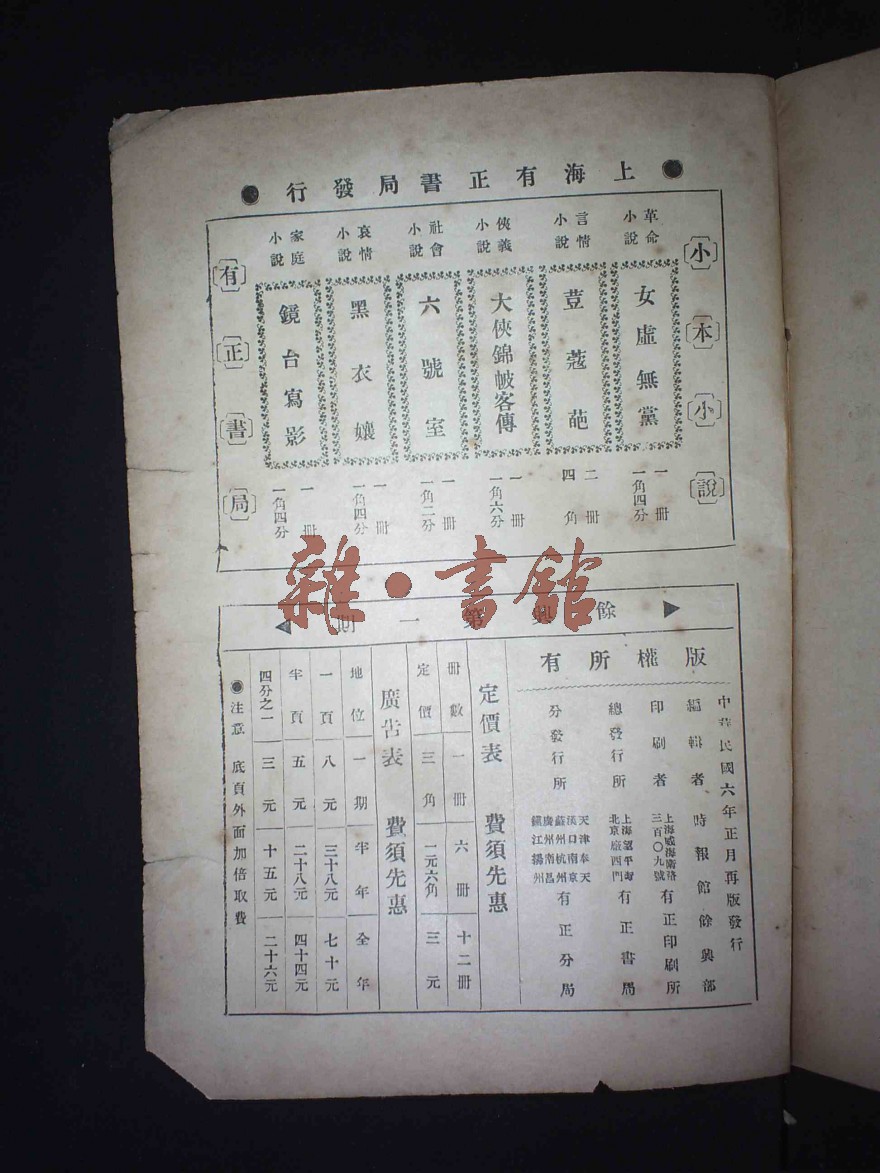 上海有正書局發行
小本小說
革命小說
女虛無黨
一冊
一角四分
言情小說
荳蔻葩
二冊
四角
俠義小說
大俠錦帔客傳
一冊
一角六分
社會小說
六號室
一冊
一角二分
哀情小說
黑衣孃
一冊
一角四分
家庭小說
鏡台寫影
一冊
一角四分
有正書局
雜·書館
餘興第一期
版權所有
中華民國六年正月再版發行
編輯者 時報館餘興部
印刷者 上海威海衛路三百〇九號 有正印刷所
總發行所 上海望平街 北京廠西門 有正書局
分發行所 天津奉天 漢口南京 蘇州杭州 廣州南昌 鎮江揚州 有正分局
定價表 費須先惠
冊數 一冊 六冊 十二冊
定價 三角 一元六角 三元
廣告表 費須先惠
地位 一期 半年 全年
一頁 八元 三十八元 七十元
半頁 五元 二十八元 四十四元
四分之一 三元 十五元 二十六元
●注意 底頁外面加倍取費